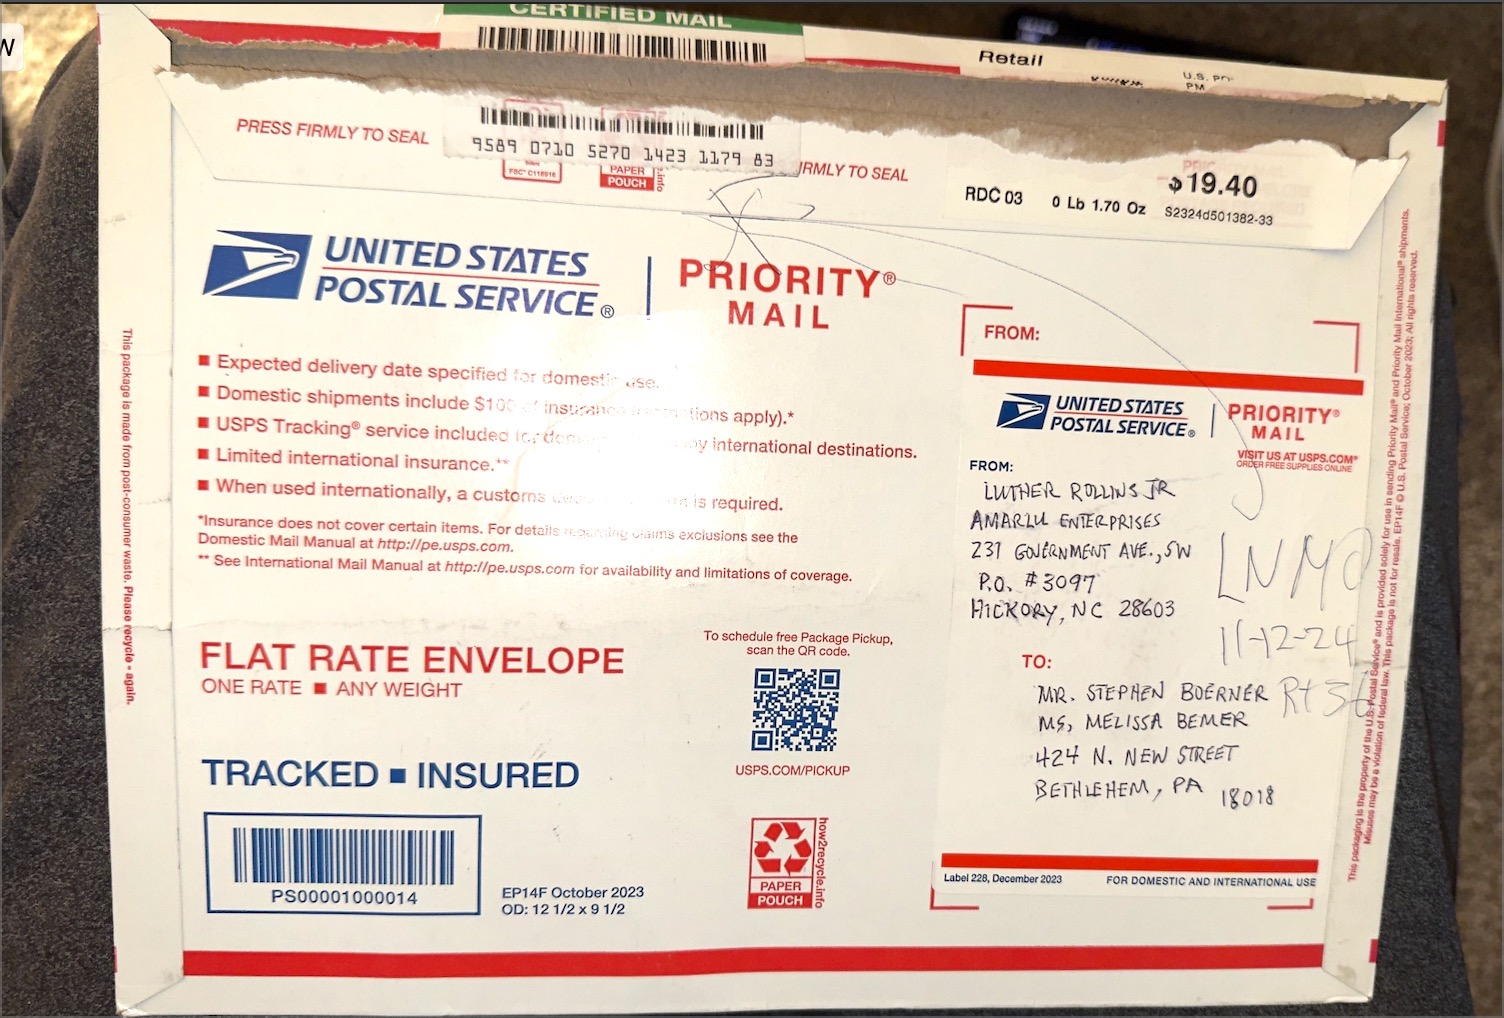 W
CERTIFIED MAIL
Retail
U.S. PO
PM
PRESS FIRMLY TO SEAL
9589 0710 5270 1423 1179 83
FSC® C116916
PAPER
POUCH
.info
IRMLY TO SEAL
RDC 03
0 Lb 1.70 Oz
$19.40
S2324d501382-33
UNITED STATES
POSTAL SERVICE®
PRIORITY®
MAIL
■ Expected delivery date specified for domestic use.
■ Domestic shipments include $100 of insurance tions apply).*
■ USPS Tracking® service included for dom y international destinations.
■ Limited international insurance.**
■ When used internationally, a customs is required.
*Insurance does not cover certain items. For details regarding claims exclusions see the
Domestic Mail Manual at http://pe.usps.com.
** See International Mail Manual at http://pe.usps.com for availability and limitations of coverage.
FLAT RATE ENVELOPE
ONE RATE ■ ANY WEIGHT
To schedule free Package Pickup,
scan the QR code.
USPS.COM/PICKUP
TRACKED ■ INSURED
PS00001000014
EP14F October 2023
OD: 12 1/2 x 9 1/2
PAPER
POUCH
how2recycle.info
FROM:
UNITED STATES
POSTAL SERVICE®
PRIORITY®
MAIL
VISIT US AT USPS.COM®
ORDER FREE SUPPLIES ONLINE
FROM:
LUTHER ROLLINS JR
AMARLU ENTERPRISES
231 GOVERNMENT AVE., SW
P.O. #3097
HICKORY, NC 28603
11-12-24
TO:
MR. STEPHEN BOERNER
MS, MELISSA BEMER
424 N. NEW STREET
BETHLEHEM, PA 18018
Label 228, December 2023
FOR DOMESTIC AND INTERNATIONAL USE
This package is made from post-consumer waste. Please recycle - again.
This packaging is the property of the U.S. Postal Service® and is provided solely for use in sending Priority Mail® and Priority Mail International® shipments.
Misuses may be a violation of federal law. This package is not for resale. EP14F © U.S. Postal Service; October 2023; All rights reserved.